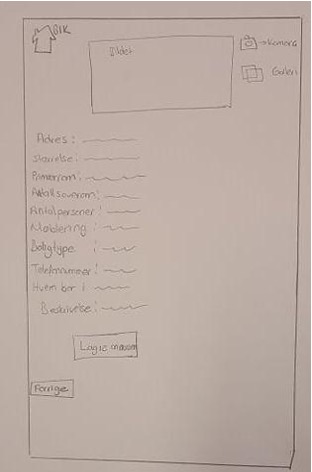 BIK
Bildet
→ Kamera
Galleri
Adres:
størrelse:
Primærrom:
Antall soverom:
Antal personer:
Møblering:
Boligtype :
Telefonnummer:
Hvem bor i:
Beskrivelse:
Lagre annonse
Forrige